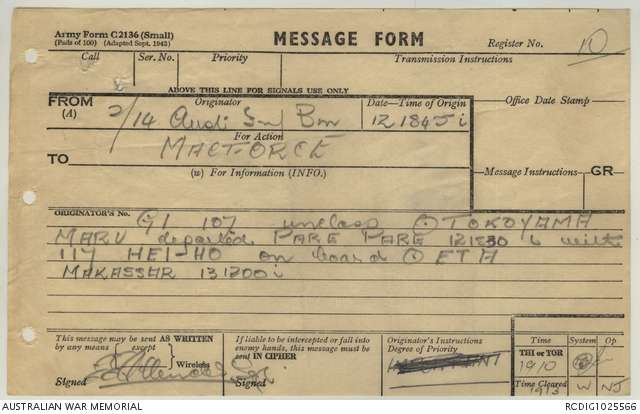 Army Form C2136 (Small)
(Pads of 100) (Adapted Sept. 1942)
MESSAGE FORM
Register No. 10
Call Ser. No. Priority Transmission Instructions
ABOVE THIS LINE FOR SIGNALS USE ONLY
FROM (A) Originator Date—Time of Origin Office Date Stamp
2/14 Aust Inf Bn 121845 i
For Action
TO MACFORCE
(w) For Information (INFO.)
Message Instructions GR
ORIGINATOR'S No. G1 107 unclass TOKOYAMA
MARU departed PARE PARE with
117 HEI-HO on board ETA
MAKASSAR 131200 i
This message may be sent AS WRITTEN
by any means except
Wireless
Signed
If liable to be intercepted or fall into
enemy hands, this message must be
sent IN CIPHER
Signed
Originator's Instructions
Degree of Priority
Time System Op
THI or TOR
1910
Time Cleared
1915 W NJ
AUSTRALIAN WAR MEMORIAL
RCDIG1025566